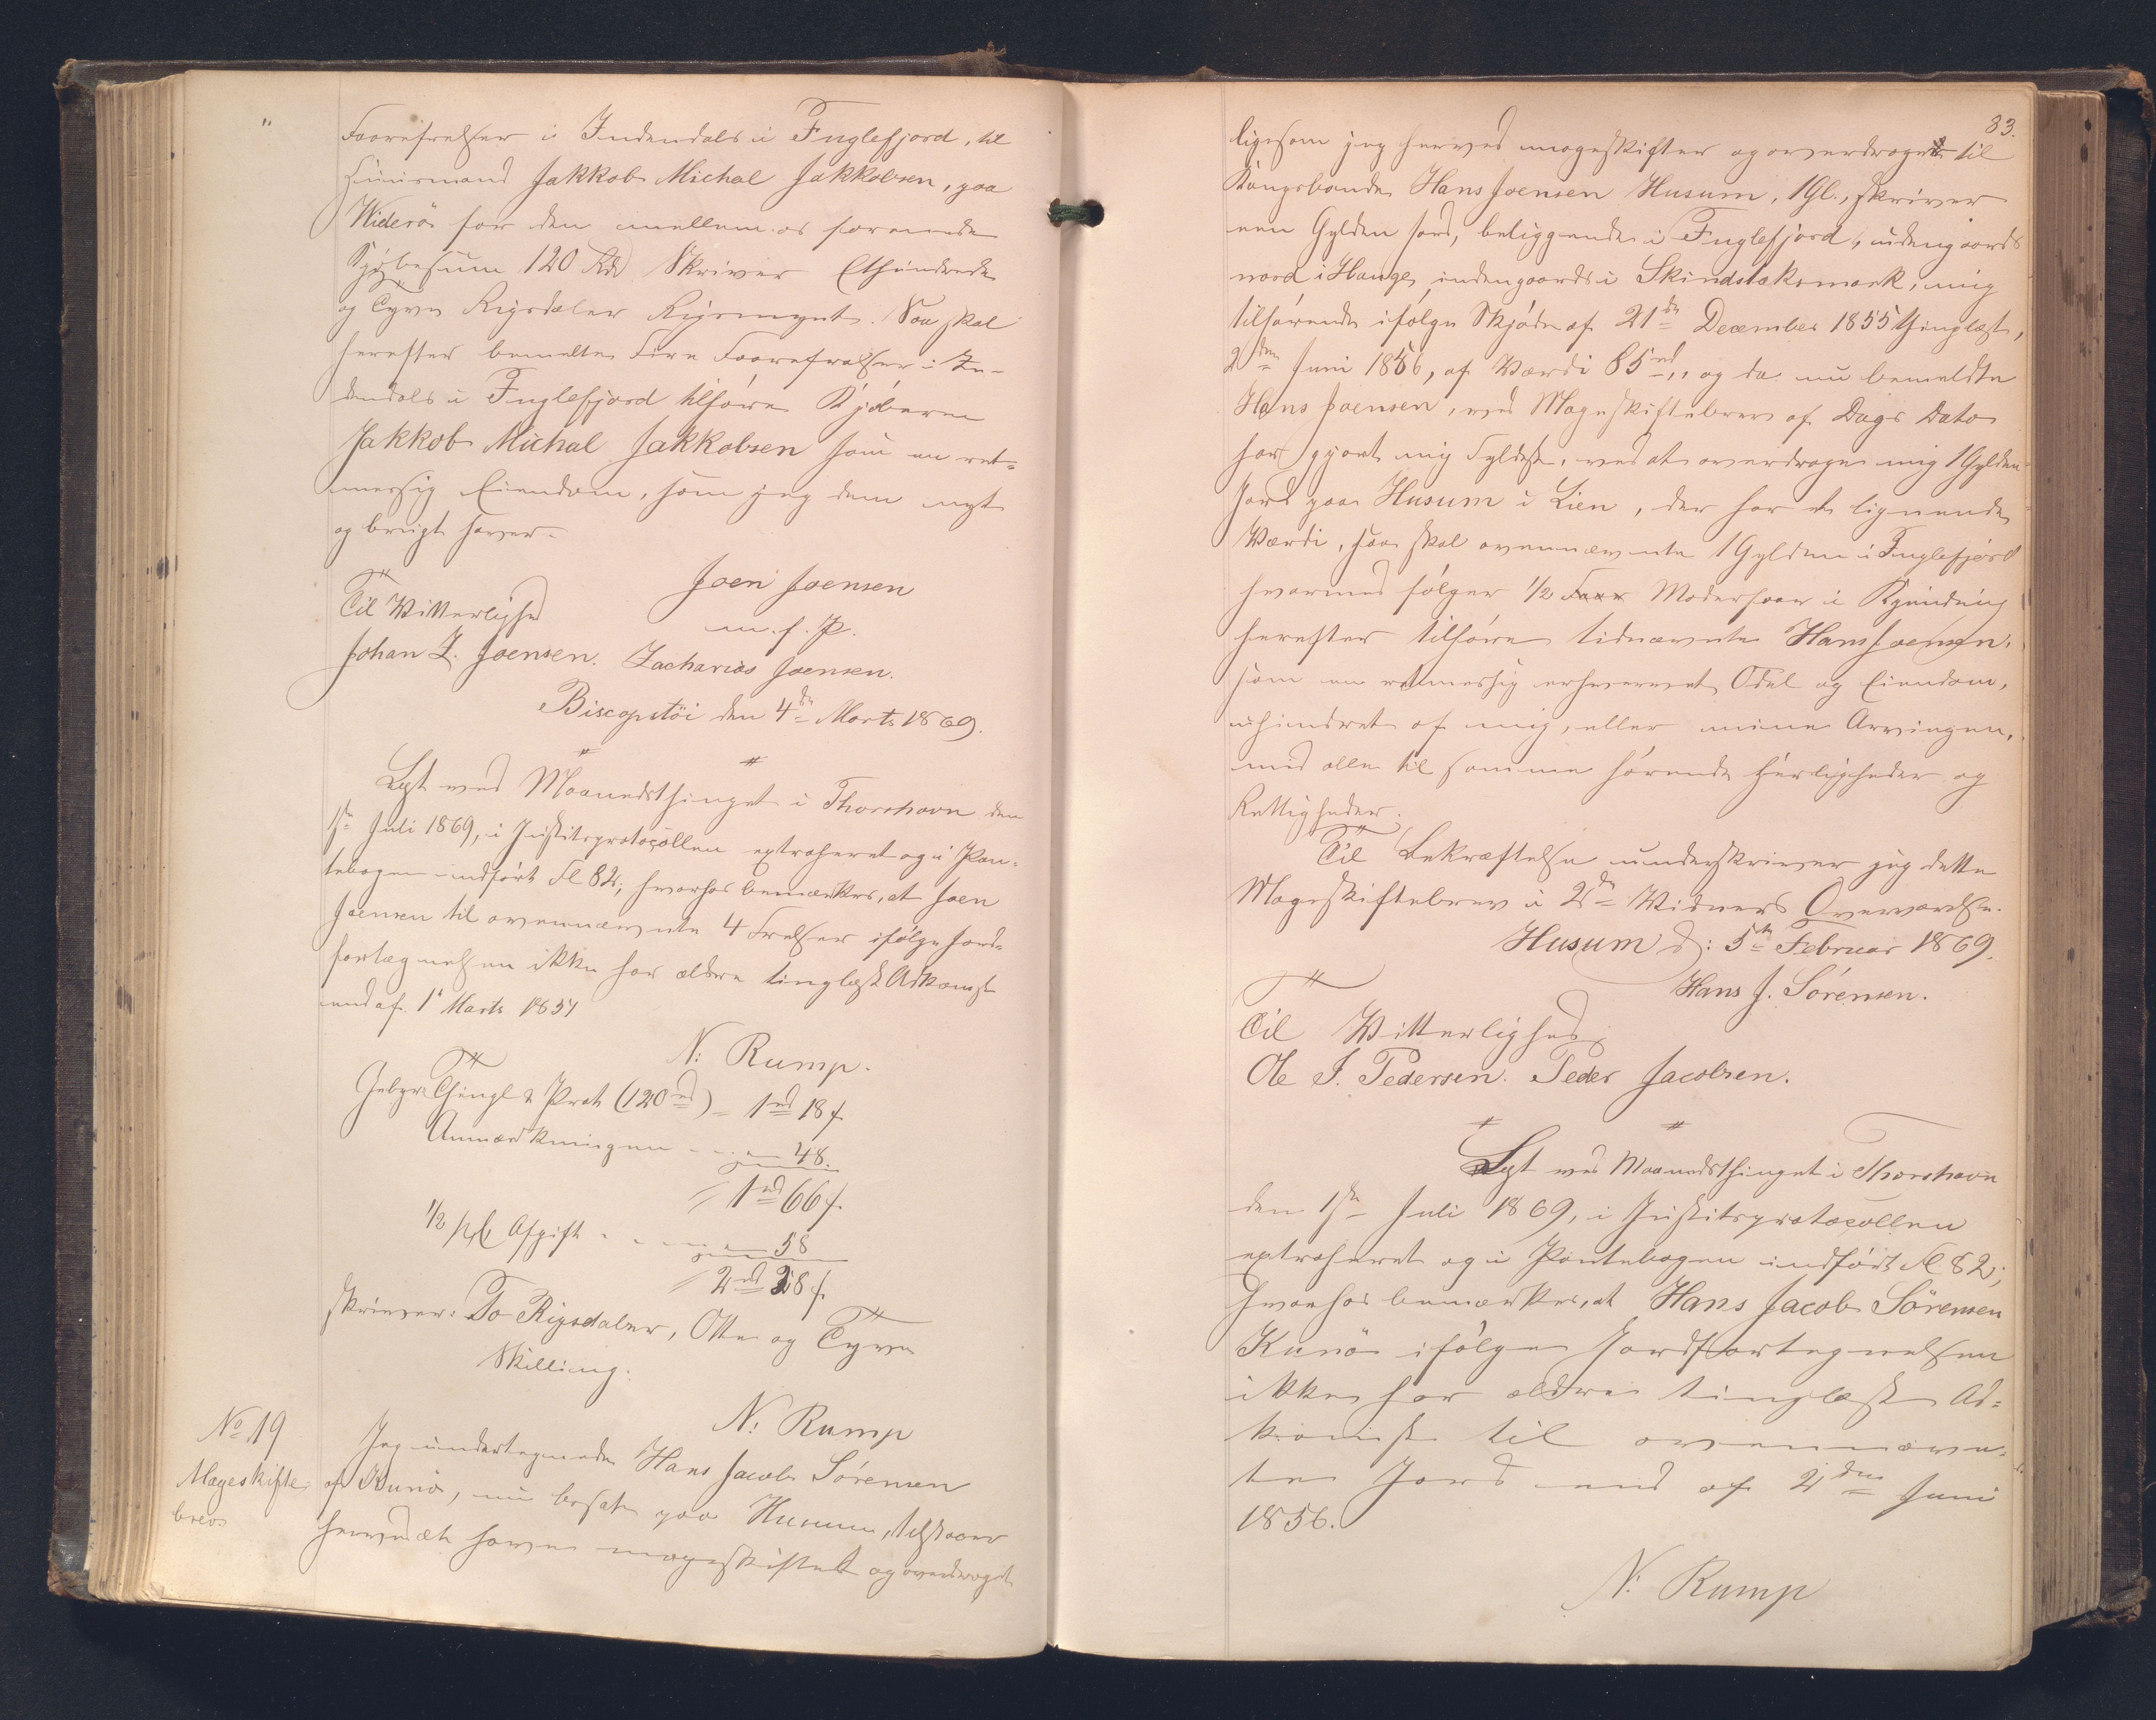 "
Faarefrelser i Indendals i Fuglefjord, til
Huusmand Jakkob Michal Jakkobsen, paa
Widerö for den mellem os forenede
Kjøbesum 120 Rdl Skriver Ethundrede
og Tyve Rigsdaler Rigsmynt. Saa skal
herefter bemeldte Fire Faarefrelser i In-
dendals i Fuglefjord tilhøre Kjøberen
Jakkob Michal Jakkobsen som en ret-
mæssig Eiendom, som jeg dem nyt
og brugt haver.
Joen Joensen
Til Vitterlighed
m. f. P.
Johan Z. Joensen. Zacharias Joensen.
Biscopstöi den 4de Marts 1869.
Lyst ved Maanedsthinget i Thorshavn den
1ste Juli 1869, i Justitsprotocollen extraheret og i Pan-
tebogen indført Fl 82; hvorhos bemærkes, at Joen
Joensen til ovennævnte 4 Frelser ifølge Jord-
fortegnelsen ikke har ældre tinglæst Adkomst
end af 1ste Marts 1857
N: Rump.
Gebyr Thingl & Prot (120 rd) = 1 rd 18 f
Anmærkningen - - - 48.
1 rd 66 f
1/2 pC Afgift - - - 58
2 rd 28 f
skriver: To Rigsdaler, Otte og Tyve
Skilling.
N: Rump
No 19
Mageskifte-
brev
Jeg undertegnede Hans Jacob Sörensen
af Kunö, nu bosat paa Husum, tilstaaer
herved at have mageskiftet og overdraget
83.
ligesom jeg herved mageskifter og overdrager til
Kongsbonde Hans Joensen Husum, 1 Gl., skriver
een Gylden Jord, beliggende i Fuglefjord, udengaards
nord i Hauge, indengaards i Skindstaksmark, mig
tilhørende ifølge Skjøde af 21de December 1855 thinglæst,
2den Juni 1856, af Værdi 85 rd,, og da nu bemeldte
Hans Joensen, ved Mageskiftebrev af Dags Dato
har gjort mig Fyldest, ved at overdrage mig 1 Gylden
Jord paa Husum i Lien, der har et lignende
Værdi, saa skal ovennævnte 1 Gylden i Fuglefjord
hvormed følger 1/2 Faar Moderfaar i Kjundning
herefter tilhøre tidnævnte Hans Joensen.
som en retmæssig erhvervet Odel og Eiendom,
uhindret af mig, eller mine Arvinger,
med alle til samme hørende Herligheder og
Rettigheder.
Til Bekræftelse underskriver jeg dette
Mageskiftebrev i 2de Vidners Overværelse.
Husum d: 5te Februar 1869.
Hans J. Sörensen.
Til Vitterlighed
Ole J. Pedersen. Peder Jacobsen.
Lyst ved Maanedsthinget i Thorshavn
den 1ste Juli 1869, i Justitsprotocollen
extraheret og i Pantebogen indført Fl 82;
hvorhos bemærkes, at Hans Jacob Sörensen
Kunö ifølge Jordfortegnelsen
ikke har ældre tinglæst Ad-
komst til ovennævn-
te Jord end af 2den Juni
1856.
N: Rump